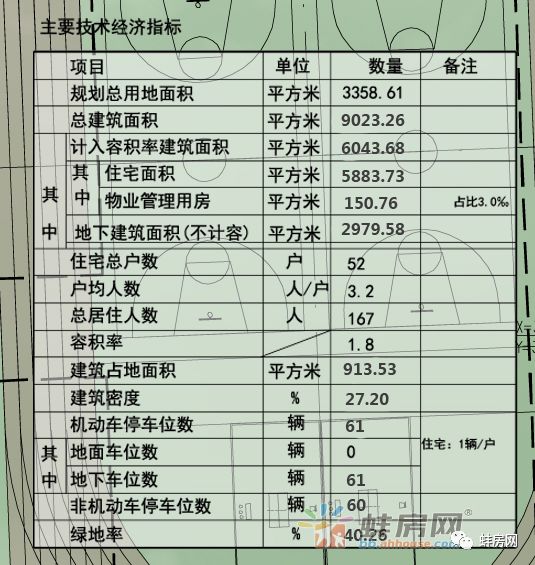 主要技术经济指标
项目 单位 数量 备注
规划总用地面积 平方米 3358.61
总建筑面积 平方米 9023.26
其中 计入容积率建筑面积 平方米 6043.68
其中 住宅面积 平方米 5883.73
物业管理用房 平方米 150.76 占比3.0‰
地下建筑面积(不计容) 平方米 2979.58
住宅总户数 户 52
户均人数 人/户 3.2
总居住人数 人 167
容积率 1.8
建筑占地面积 平方米 913.53
建筑密度 % 27.20
机动车停车位数 辆 61 住宅：1辆/户
其中 地面车位数 辆 0
地下车位数 辆 61
非机动车停车位数 辆 60
绿地率 % 40.26
蚌房网
蚌房网